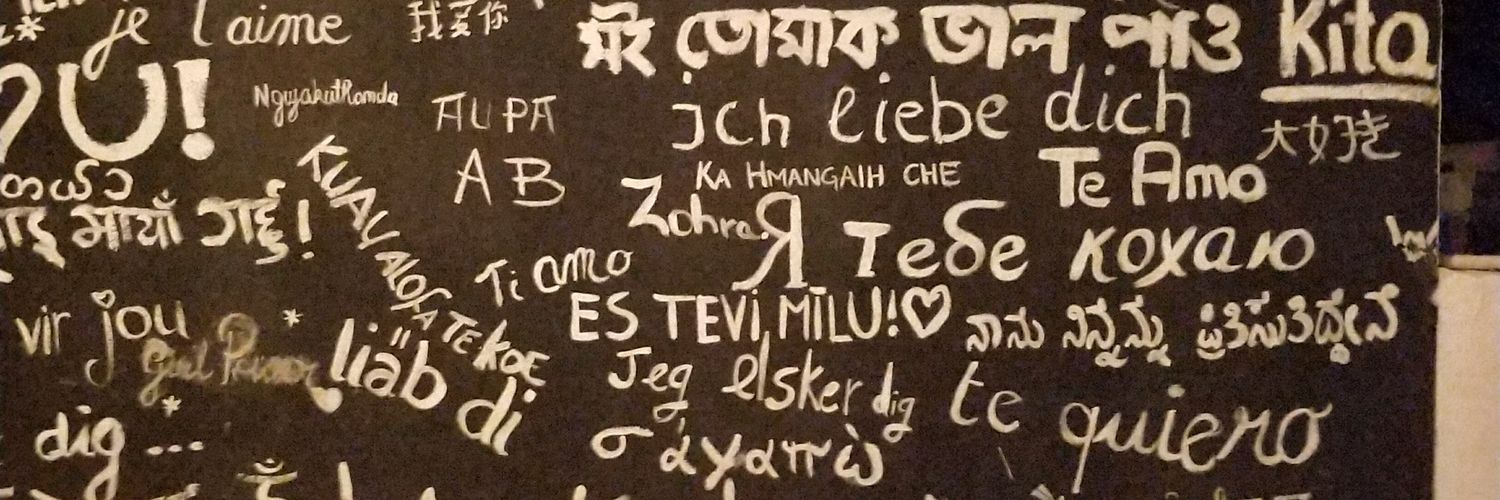 je t'aime
我爱你
মই তোমাক ভাল পাওঁ
Kita
U!
Ngiyakuthanda
AUPA
AB
ich liebe dich
大好き
KA HMANGAIH CHE
Te Amo
Zohra
Я тебе кохаю
माया गर्छु!
KUAU ALOFA
TE KOE
Ti amo
ES TEVI MĪLU!♡
ನಾನು ನಿನ್ನನ್ನು ಪ್ರೀತಿಸುತಿದ್ದೇನೆ
vir jou
liäb di
Jeg elsker dig
te quiero
dig ...
σ' άγαπώ